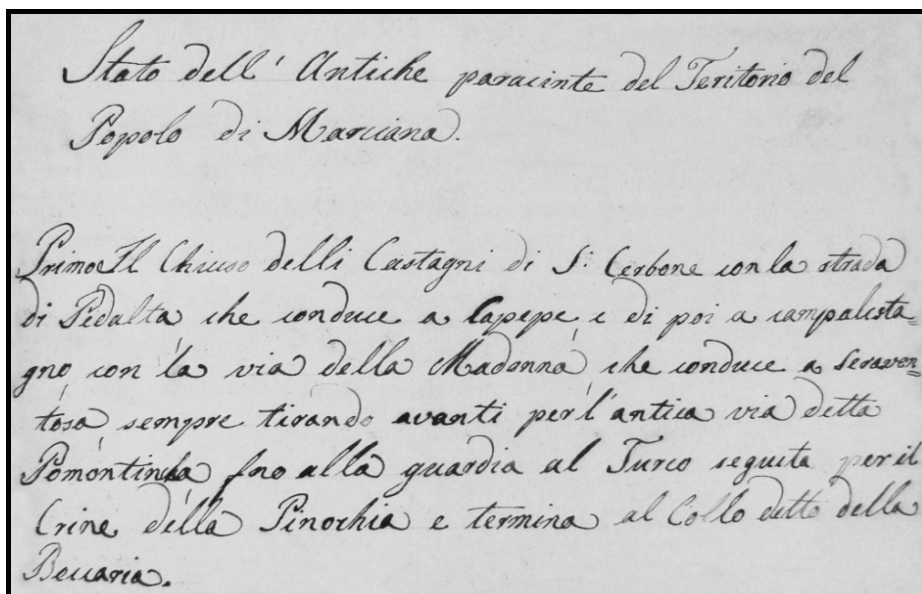 Stato dell' Antiche paracinte del Teritorio del
Popolo di Marciana.
Primo Il Chiuso delli Castagni di S. Cerbone con la strada
di Pedalta che conduce a Capepe, e di poi a campalcsta=
gno con la via della Madonna che conduce a Seraven=
tosa sempre tirando avanti per l'antica via detta
Pomontincha fno alla guardia al Turco seguita per il
Crine della Pinochia e termina al Collo detto della
Beccaria.